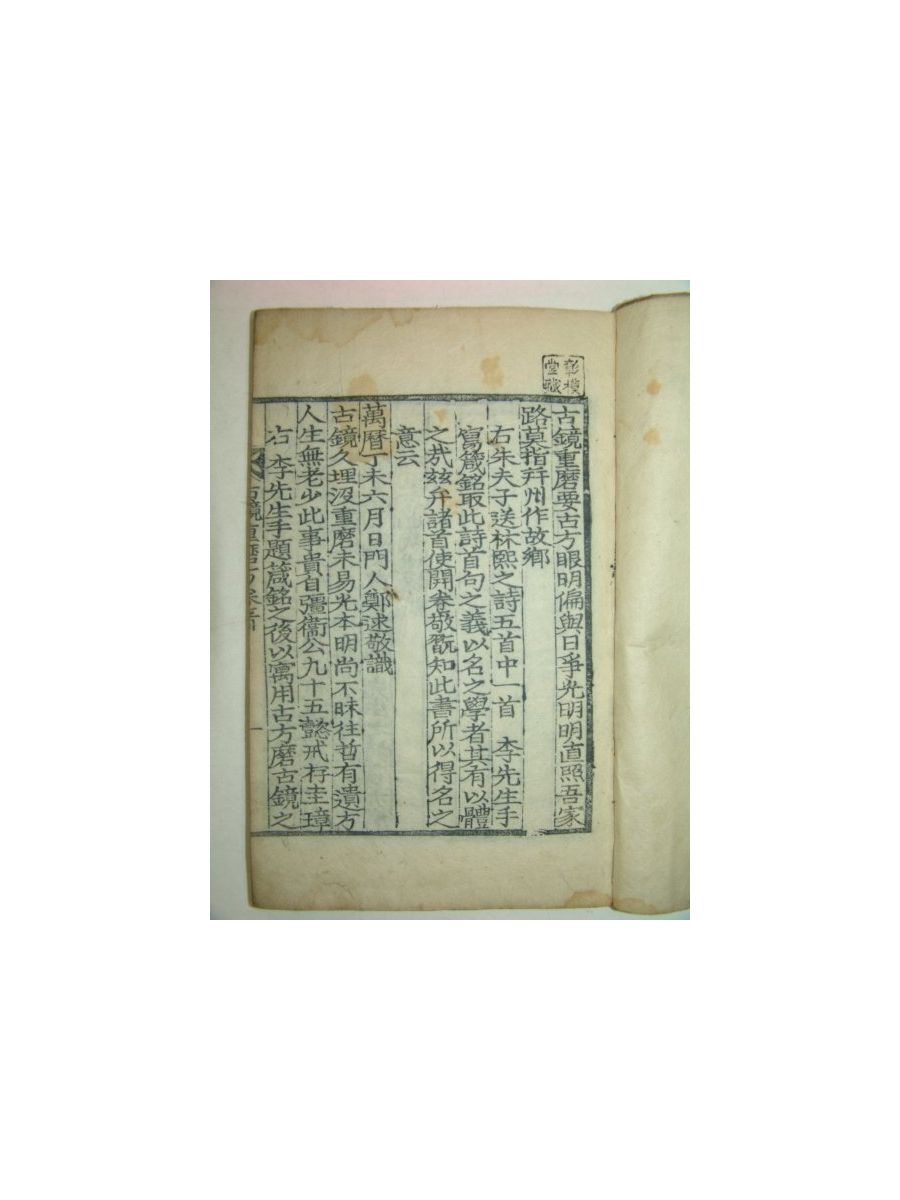 古鏡重磨要古方眼明偏與日爭光明明直照吾家
路莫指幷州作故鄉
右朱夫子送林熙之詩五首中一首 李先生手
寫箴銘取此詩首句之義以名之學者其有以體
之㦲玆弁諸首使開卷敬翫知此書所以得名之
意云
萬曆丁未六月日門人鄭逑敬識
古鏡久埋没重磨未易光本明尚不昧往哲有遺方
人生無老少此事貴自彊衞公九十五懿戒存圭璋
右 李先生手題箴銘之後以寓用古方磨古鏡之
古鏡重磨方